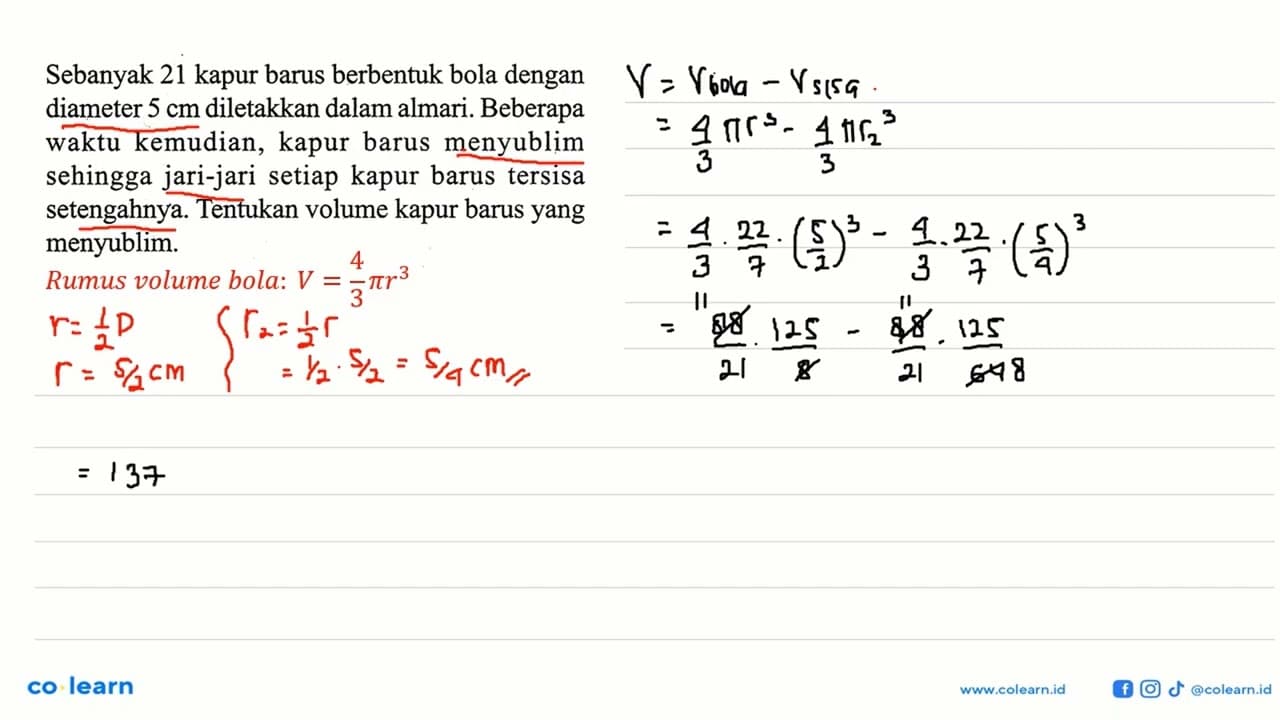 Sebanyak 21 kapur barus berbentuk bola dengan
diameter 5 cm diletakkan dalam almari. Beberapa
waktu kemudian, kapur barus menyublim
sehingga jari-jari setiap kapur barus tersisa
setengahnya. Tentukan volume kapur barus yang
menyublim.
Rumus volume bola: V = 4/3 πr³
r = 1/2 D
r = 5/2 cm
r₂ = 1/2 r
= 1/2 · 5/2 = 5/4 cm //
V = V bola - V sisa.
= 4/3 πr³ - 4/3 πr₂³
= 4/3 · 22/7 · (5/2)³ - 4/3 · 22/7 · (5/4)³
11 11
= 88/21 · 125/8 - 88/21 · 125/64 8
= 137
co·learn
www.colearn.id @colearn.id